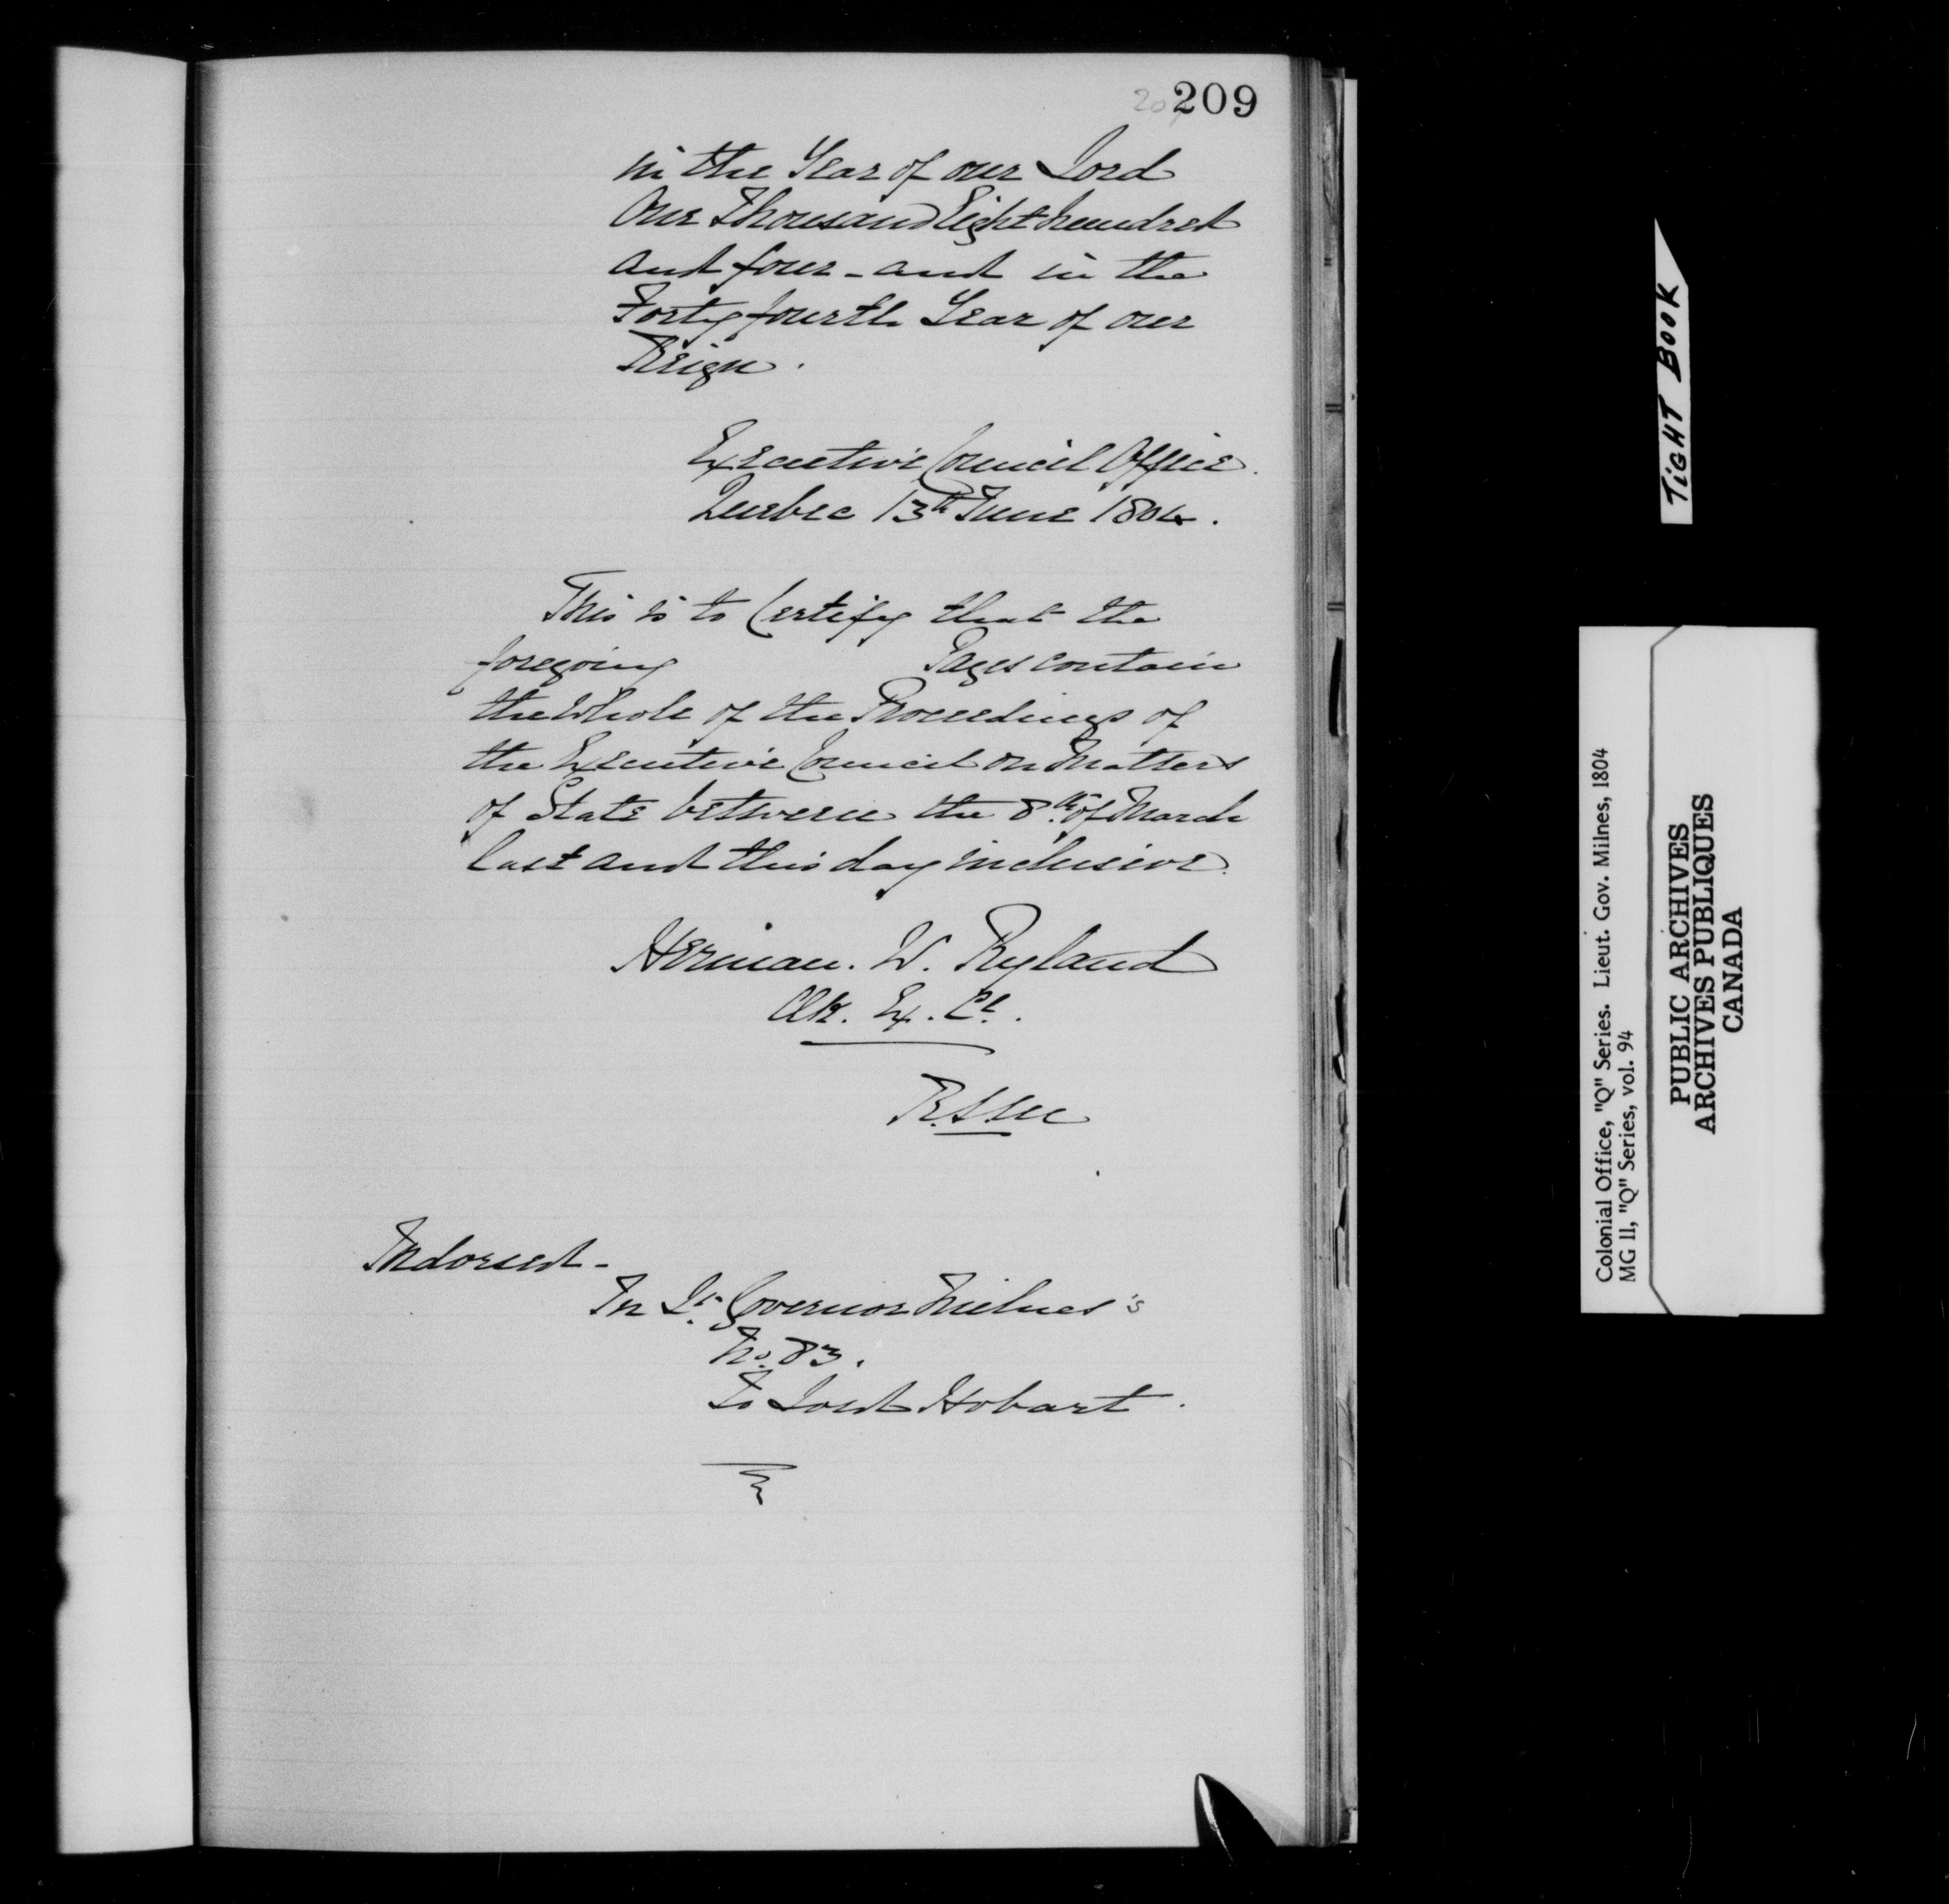 209
in the Year of our Lord
One Thousand Eight hundred
and four - and in the
Forty fourth Year of our
Reign.
Executive Council Office.
Quebec 13th June 1804.
This is to Certify that the
foregoing Pages contain
the whole of the Proceedings of
the Executive Council on Matters
of State between the 8th of March
last and this day inclusive.
Herman. W. Ryland
Clk. Ex. Cl.
Indorsed -
In Lt. Governor Milnes's
No. 83.
To Lord Hobart.
TIGHT BOOK
Colonial Office, "Q" Series. Lieut. Gov. Milnes, 1804
MG 11, "Q" Series, vol. 94
PUBLIC ARCHIVES
ARCHIVES PUBLIQUES
CANADA